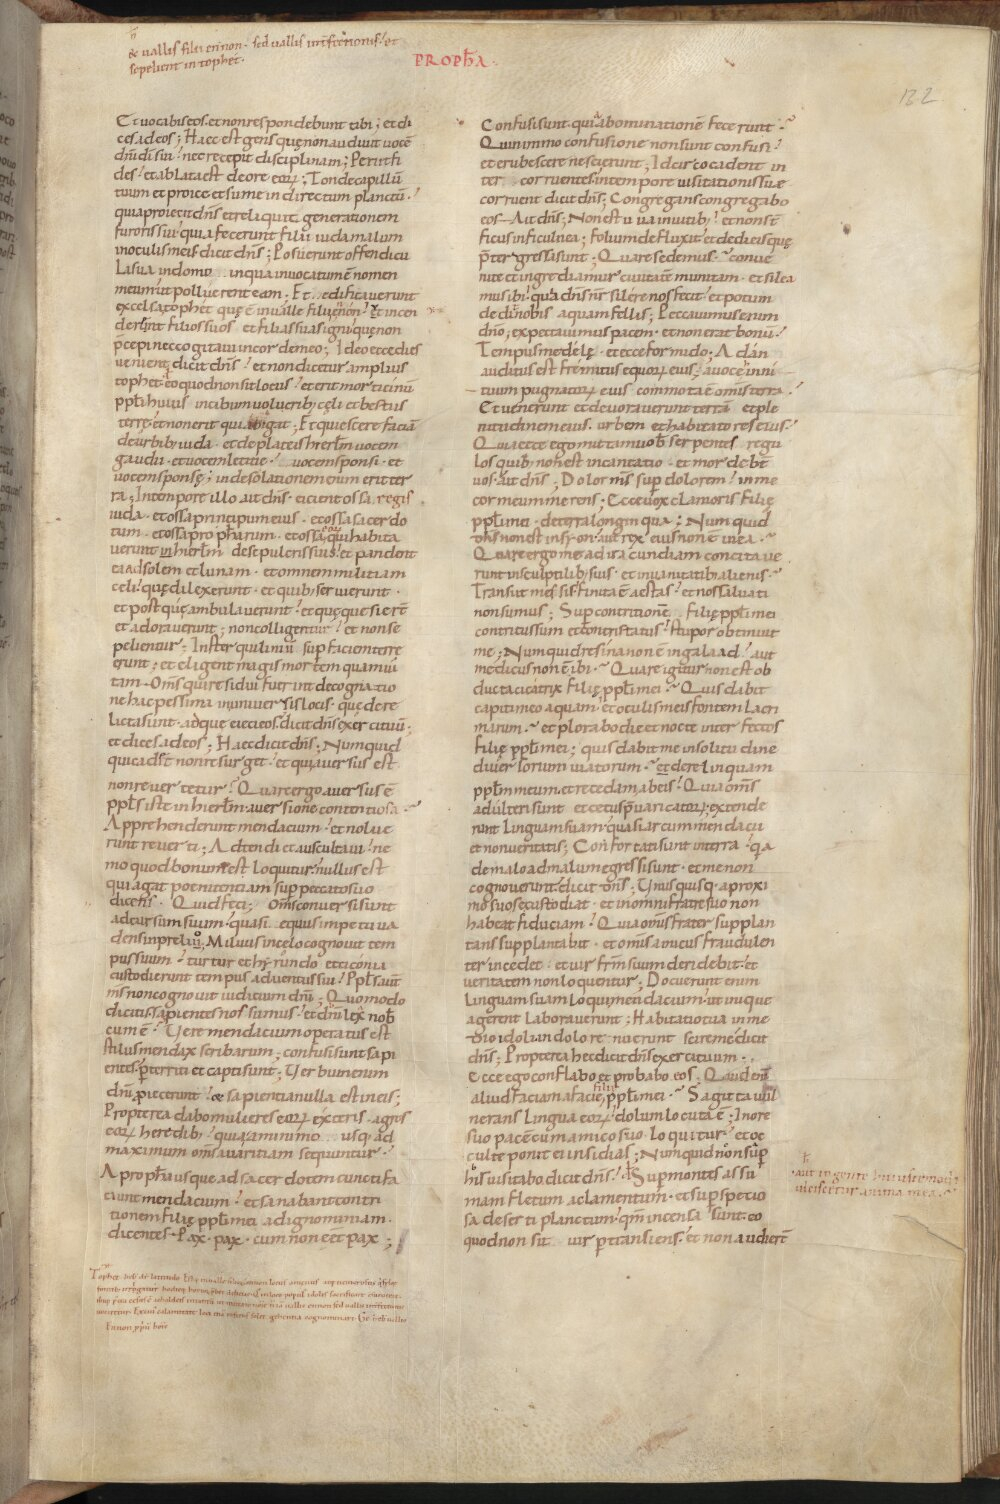 & uallis filii ennon. sed uallis interfectionis. et
sepelient in topheth.
PROPHA
132
Et uocabis eos. et non respondebunt tibi; et di
ces ad eos; Haec est gens quę non audiuit uocē
dn̄i dī sui. nec recepit disciplinam; Periit fi
des. et ablata est de ore eorꝝ; Tonde capillū
tuum et proice et sume in directum planctū.
quia proiecit dn̄s et reliquit generationem
furoris sui quia fecerunt filii iuda malum
in oculis meis dicit dn̄s; Posuerunt offendicu
la sua in domo in qua inuocatum ē nomen
meum ut polluerent eam. Et edificauerunt
excelsa tophet quę ē in ualle filii ennon. et incen
derent filios suos et filias suas igni quę non
p̄cepi nec cogitaui in corde meo; Ideo ecce dies
uenient dicit dn̄s. et non dicetur amplius
tophet eo quod non sit locus. et erit morticinū
ppl̄i huius in cibum uolucribꝫ cęli et bestiis
terre et non erit qui abigat; Et quiescere faciā
de urbibꝫ iuda. et de plateis hierl̄m uocem
gaudii. et uocem letitie. uocem sponsi. et
uocem sponsę; in desolationem enim erit ter
ra; In tempore illo ait dn̄s. eicient ossa regis
iuda. et ossa principum eius. et ossa sacerdo
tum. et ossa propharum. et ossa eorꝝ qui habita
uerunt in hierl̄m de sepulcris suis. et pandent
ea ad solem et lunam. et omnem militiam
celi quę dilexerunt. et quibꝫ seruierunt.
et post quę ambulauerunt. et quę quesiert̄
et adorauerunt; non colligentur. et non se
pelientur; In sterquilinium sup faciem terre
erunt; et eligent magis mortem quam ui
tam. Om̄s qui residui fuerint de cognatio
ne hac pessima in uniuersis locis. que dere
licta sunt. ad que eieci eos. dicit dn̄s exercituū;
et dices ad eos; Haec dicit dn̄s; Numquid
qui cadet non resurget. et qui auersus est
non reuertetur. Quare ergo auersus ē
ppl̄s iste in hierl̄m. auersione contentiosa.
Apprehenderunt mendacium. et nolue
runt reuerti; Adtendi et auscultaui. ne
mo quod bonum est loquitur. nullus est
qui agat poenitentiam sup peccato suo
dicens. Quid feci; Om̄s conuersi sunt
ad cursum suum. quasi equus impetu ua
dens in preliū; Miluus in celo cognouit tem
pus suum. turtur et hyrundo et ciconia
custodierunt tempus aduentus sui. Ppl̄s aut̄
m̄s non cognouit iudicium dn̄i; Quomodo
dicitis sapientes nos sumus. et dn̄i lex nob
cum ē. Uere mendacium operatus est
stilus mendax scribarum; confusi sunt sapi
entes. perterriti et capti sunt; Uerbum enim
dn̄i proiecerunt. & sapientia nulla est in eis;
Propterea dabo mulieres eorꝝ exteris. agros
eorꝝ heredibꝫ. quia a minimo usq. ad
maximum om̄s auaritiam sequuntur.
A propha usque ad sacerdotem cuncti fa
ciunt mendacium. et sanabant contri
tionem filię ppl̄i mei ad ignominiam.
dicentes. Pax. pax. cum non eēt pax;
Confusi sunt. quia abominationē fecerunt.
Quinimmo confusione non sunt confusi.
et erubescere nescierunt; Idcirco cadent in
ter corruentes. in tempore uisitationis suę
corruent dicit dn̄s; Congregans congregabo
eos. Ait dn̄s; Non est uua in uitibꝫ. et non s̄t
ficus in ficulnea; folium defluxit. et dedi eis quę
p̄tergressi sunt; Quare sedemus. conue
nite et ingrediamur ciuitatē munitam. et silea
mus ibi. quia dn̄s nr̄ silere nos fecit. et potum
dedit nobis aquam fellis; Peccauimus enim
dn̄o; expectauimus pacem. et non erat bonū.
Tempus medelę. et ecce formido; A dan
auditus est fremitus equorꝝ eius; a uoce hinni
tuum pugnatorꝝ eius commota ē om̄is terra.
Et uenerunt et deuorauerunt terrā et ple
nitudinem eius. urbem et habitatores eius.
Quia ecce ego mittam uob serpentes regu
los quibꝫ non est incantatio. et mordebt̄
uos. ait dn̄s; Dolor m̄s sup dolorem. in me
cor meum merens; Ecce uox clamoris filię
ppl̄i mei. de terra longinqua; Numquid
dn̄s non est in syon. aut rex eius non ē in ea.
Quare ergo me ad iracundiam concitaue
runt in sculptilibꝫ suis. et in uanitatibꝫ alienis.
Transiit messis. finita ē aestas. et nos saluati
non sumus; Sup contritionē filię ppl̄i mei
contritus sum et contristatus. stupor obtinuit
me; Numquid resina non ē in galaad. aut
medicus non ē ibi. Quare igitur non est ob
ducta cicatrix filię ppl̄i mei. Quis dabit
capiti meo aquam et oculis meis fontem lacri
marum. et plorabo die et nocte interfectos
filię ppl̄i mei; quis dabit me in solitudine
diuersorium uiatorum. et derelinquam
ppl̄m meum. et recedam ab eis. Quia om̄s
adulteri sunt et cetus p̄uaricatorꝝ; extende
runt linguam suam quasi arcum mendacii
et non ueritatis; Confortati sunt in terra. quia
de malo ad malum egressi sunt. et me non
cognouerunt. dicit dn̄s; Unusquisq. a proxi
mo suo se custodiat. et in omni fratre suo non
habeat fiduciam. Quia om̄s frater supplan
tans supplantabit. et om̄s amicus fraudulen
ter incedet. et uir fr̄m suum deridebit. et
ueritatem non loquentur; Docuerunt enim
linguam suam loqui mendacium. ut inique
agerent laborauerunt; Habitatio tua in me
dio doli. in dolo renuerunt scire me dicit
dn̄s; Propterea hec dicit dn̄s exercituum.
Ecce ego conflabo et probabo eos. Quid enī
aliud faciam a facie filię ppl̄i mei. Sagitta uul
nerans lingua eorꝝ. dolum locuta ē; In ore
suo pacē cum amico suo loquitur. et oc
culte ponit ei insidias; Numquid non sup
his uisitabo dicit dn̄s. Sup montes assu
mam fletum ac lamentum. et sup spetio
sa deserti planctum. qm̄ incensa sunt. eo
quod non sit uir p̄transiens. et non audiert̄
aut in gente huiuscemodi
ulciscetur anima mea.